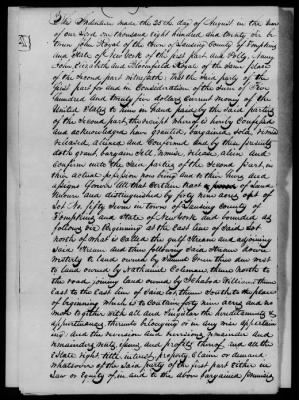 This Indenture made the 25th day of August in the year
of our Lord one thousand eight hundred and twenty six be
tween John Royal of the Town of Lansing County of Tompkins
and State of New York of the first part and Polly, Nancy
John Elizabeth and Bloomfield Royal of the same place
of the second part witnesseth that the said party of the
first part for and in Consideration of the Sum of Five
hundred and twenty five dollars Current money of the
United States to him in hand paid by the said parties
of the second part, the receipt whereof is hereby Confessed
and acknowledged have granted, bargained, sold, remised
released, aliened and Confirmed and by these presents
doth grant, bargain sell, remise, release alien and
confirm unto the said parties of the second part, in
their actual possession now being and to their heirs and
assigns forever All that Certain tract of land
known and distinguished by forty nine acres off of
Lot No. fifty seven in town of Lansing County of
Tompkins and State of New York and bounded as
follows viz Beginning at the East line of said Lot
north of what is Called the Stream and adjoining
said Stream and thence following said Stream down
westerly to land owned by Green thence due west
to land owned by Nathaniel Coleman, thence north to
the road joining land owned by Williams thence
East to the East line of said Lot, thence South to the place
of beginning which is to Contain forty nine acres and no
more together with all and Singular the hereditaments &
appurtenances thereunto belonging or in any wise appertain
ing and the reversion and reversions, remainder and
remainders, rents, issues, and profits thereof and all the
Estate right title, interest, property Claim or demand
whatsoever of the said party of the first part Either in
Law or Equity of, in and to the above bargained premises